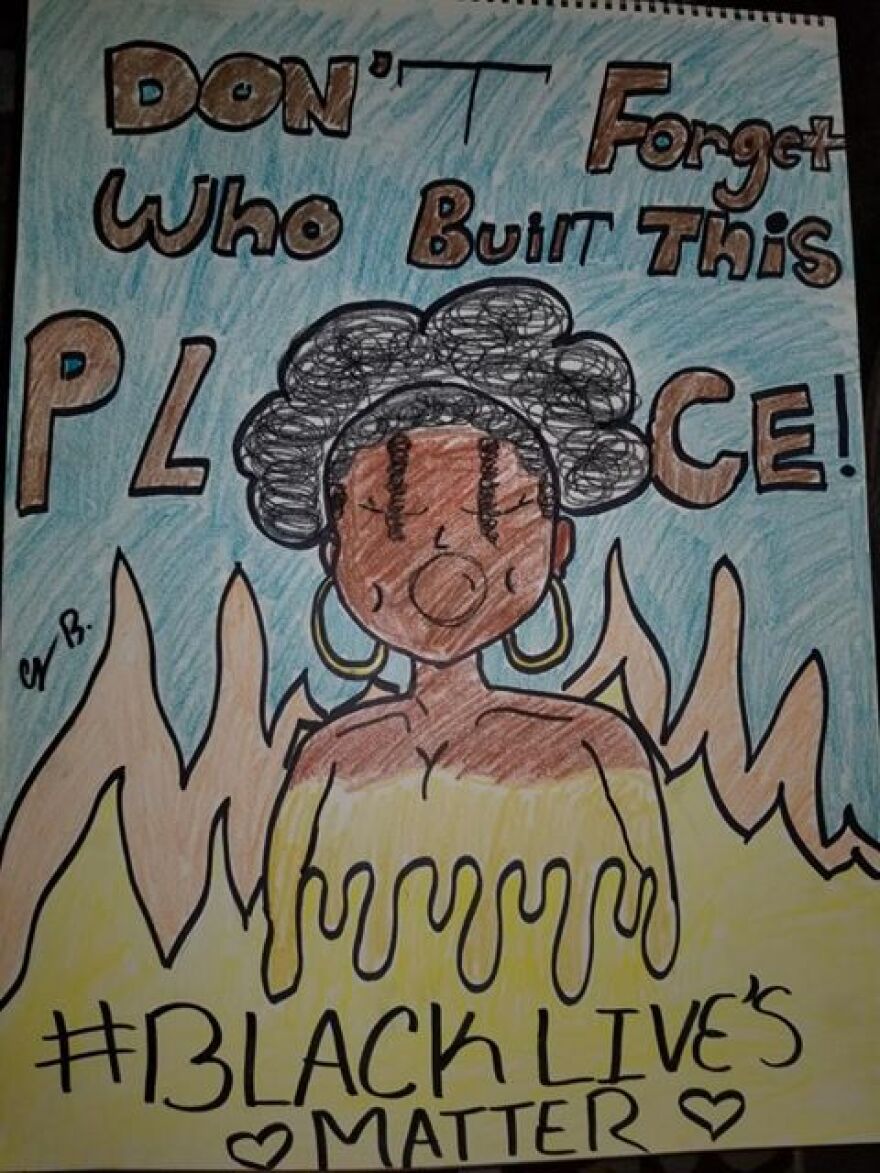 DON'T Forget
Who BuilT This
PLCE!
B.
#BLACK LIVE'S
MATTER